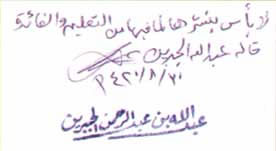 لا بأس بنشرها لما فيها من التعليم والفائدة
قاله عبد الله الجبرين
١٤٢٠/٨/٢٠ هـ
عبد الله بن عبد الرحمن الجبرين